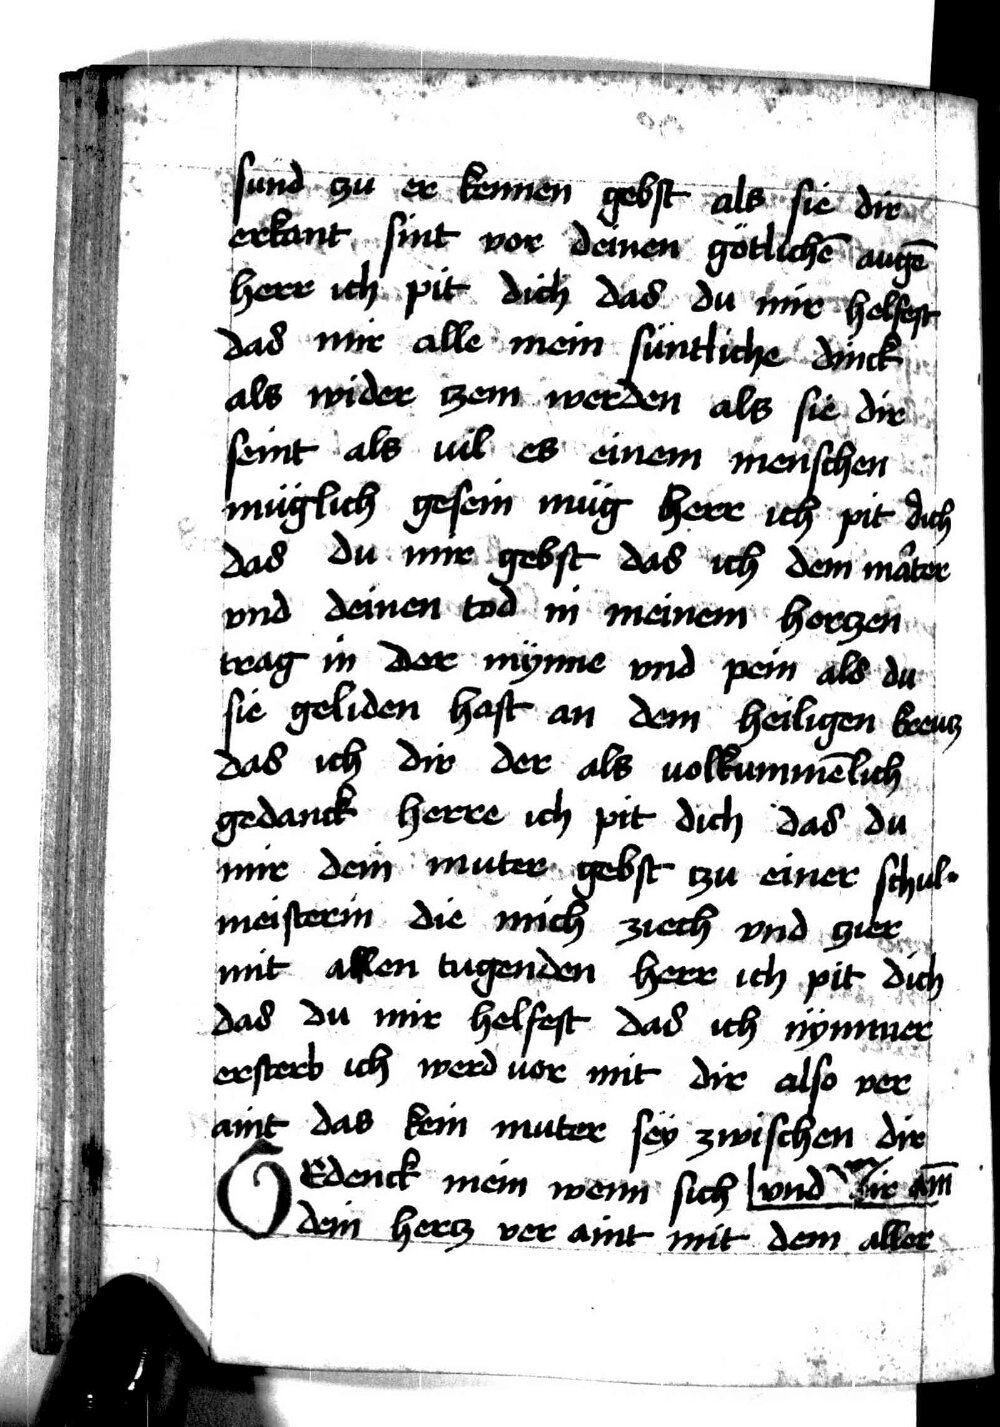 sünd tzu er kennen gebst als sie dir
erkant sint vor deinen götlichē augē
herr ich pit dich das du mir helfest
das mir alle mein süntliche dinck
als wider tzem werden als sie dir
seint als uil es einem menschen
müglich gesein müg herr ich pit dich
das du mir gebst das ich dein mater
vnd deinen tod in meinem hertzen
trag in der mÿnne vnd pein als du
sie geliden hast an dem heiligen kreutz
das ich dir der als uolkummēlich
gedanck herre ich pit dich das du
mir dein muter gebst tzu einer schul-
meisterin die mich ziech vnd tzier
mit allen tugenden herr ich pit dich
das du mir helfest das ich nÿmmer
ersterb ich werd uor mit dir also ver
aint das kein muter seÿ zwischen dir
GEdenck mein wenn sich vnd mir am̄
dein hertz ver aint mit dem aller